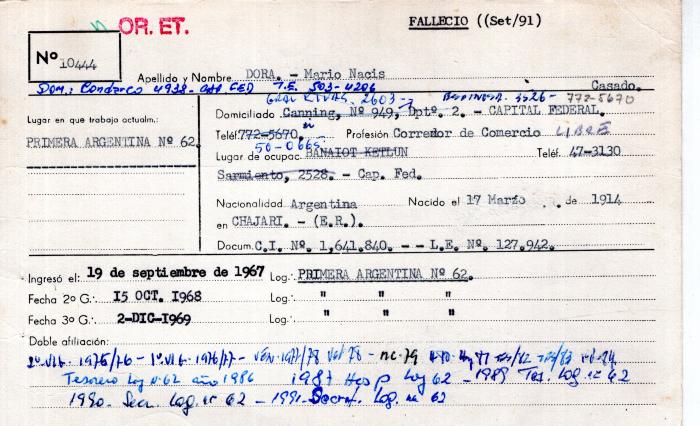 OR. ET.
FALLECIO ((Set/91)
Nº 10444
Apellido y Nombre DORA. - Mario Nacis
Casado.
Dom: Condarco 4938 - CAP FED T.E. 503-4206
GRAL RIVAS 2603 → 3326 - 772-5670
Domiciliado Canning, Nº 949, Dptº. 2. - CAPITAL FEDERAL.
Lugar en que trabaja actualm.:
PRIMERA ARGENTINA Nº 62.
Teléf. 772-5670. Profesión Corredor de Comercio LIBRE
50-0665
Lugar de ocupac. BANAIOT KETLUN Teléf. 47-3130
Sarmiento, 2528. - Cap. Fed.
Nacionalidad Argentina Nacido el 17 Marzo de 1914
en CHAJARI. - (E.R.).
Docum. C.I. Nº. 1,641.840. - - L.E. Nº. 127.942.
Ingresó el: 19 de septiembre de 1967 Log.: PRIMERA ARGENTINA Nº 62.
Fecha 2º G.: 15 OCT. 1968 Log.: " " "
Fecha 3º G.: 2-DIC-1969 Log.: " " "
Doble afiliación:
2º Vig. 1975/76 - 1º Vig. 1976/77 - VEN. 1977/78
Tesorero Log nº 62 año 1986 1987 Hosp Log 62 - 1989 Tes. Log. nº 62
1990. Secr. Log. nº 62 - 1991. Secret. Log. nº 62